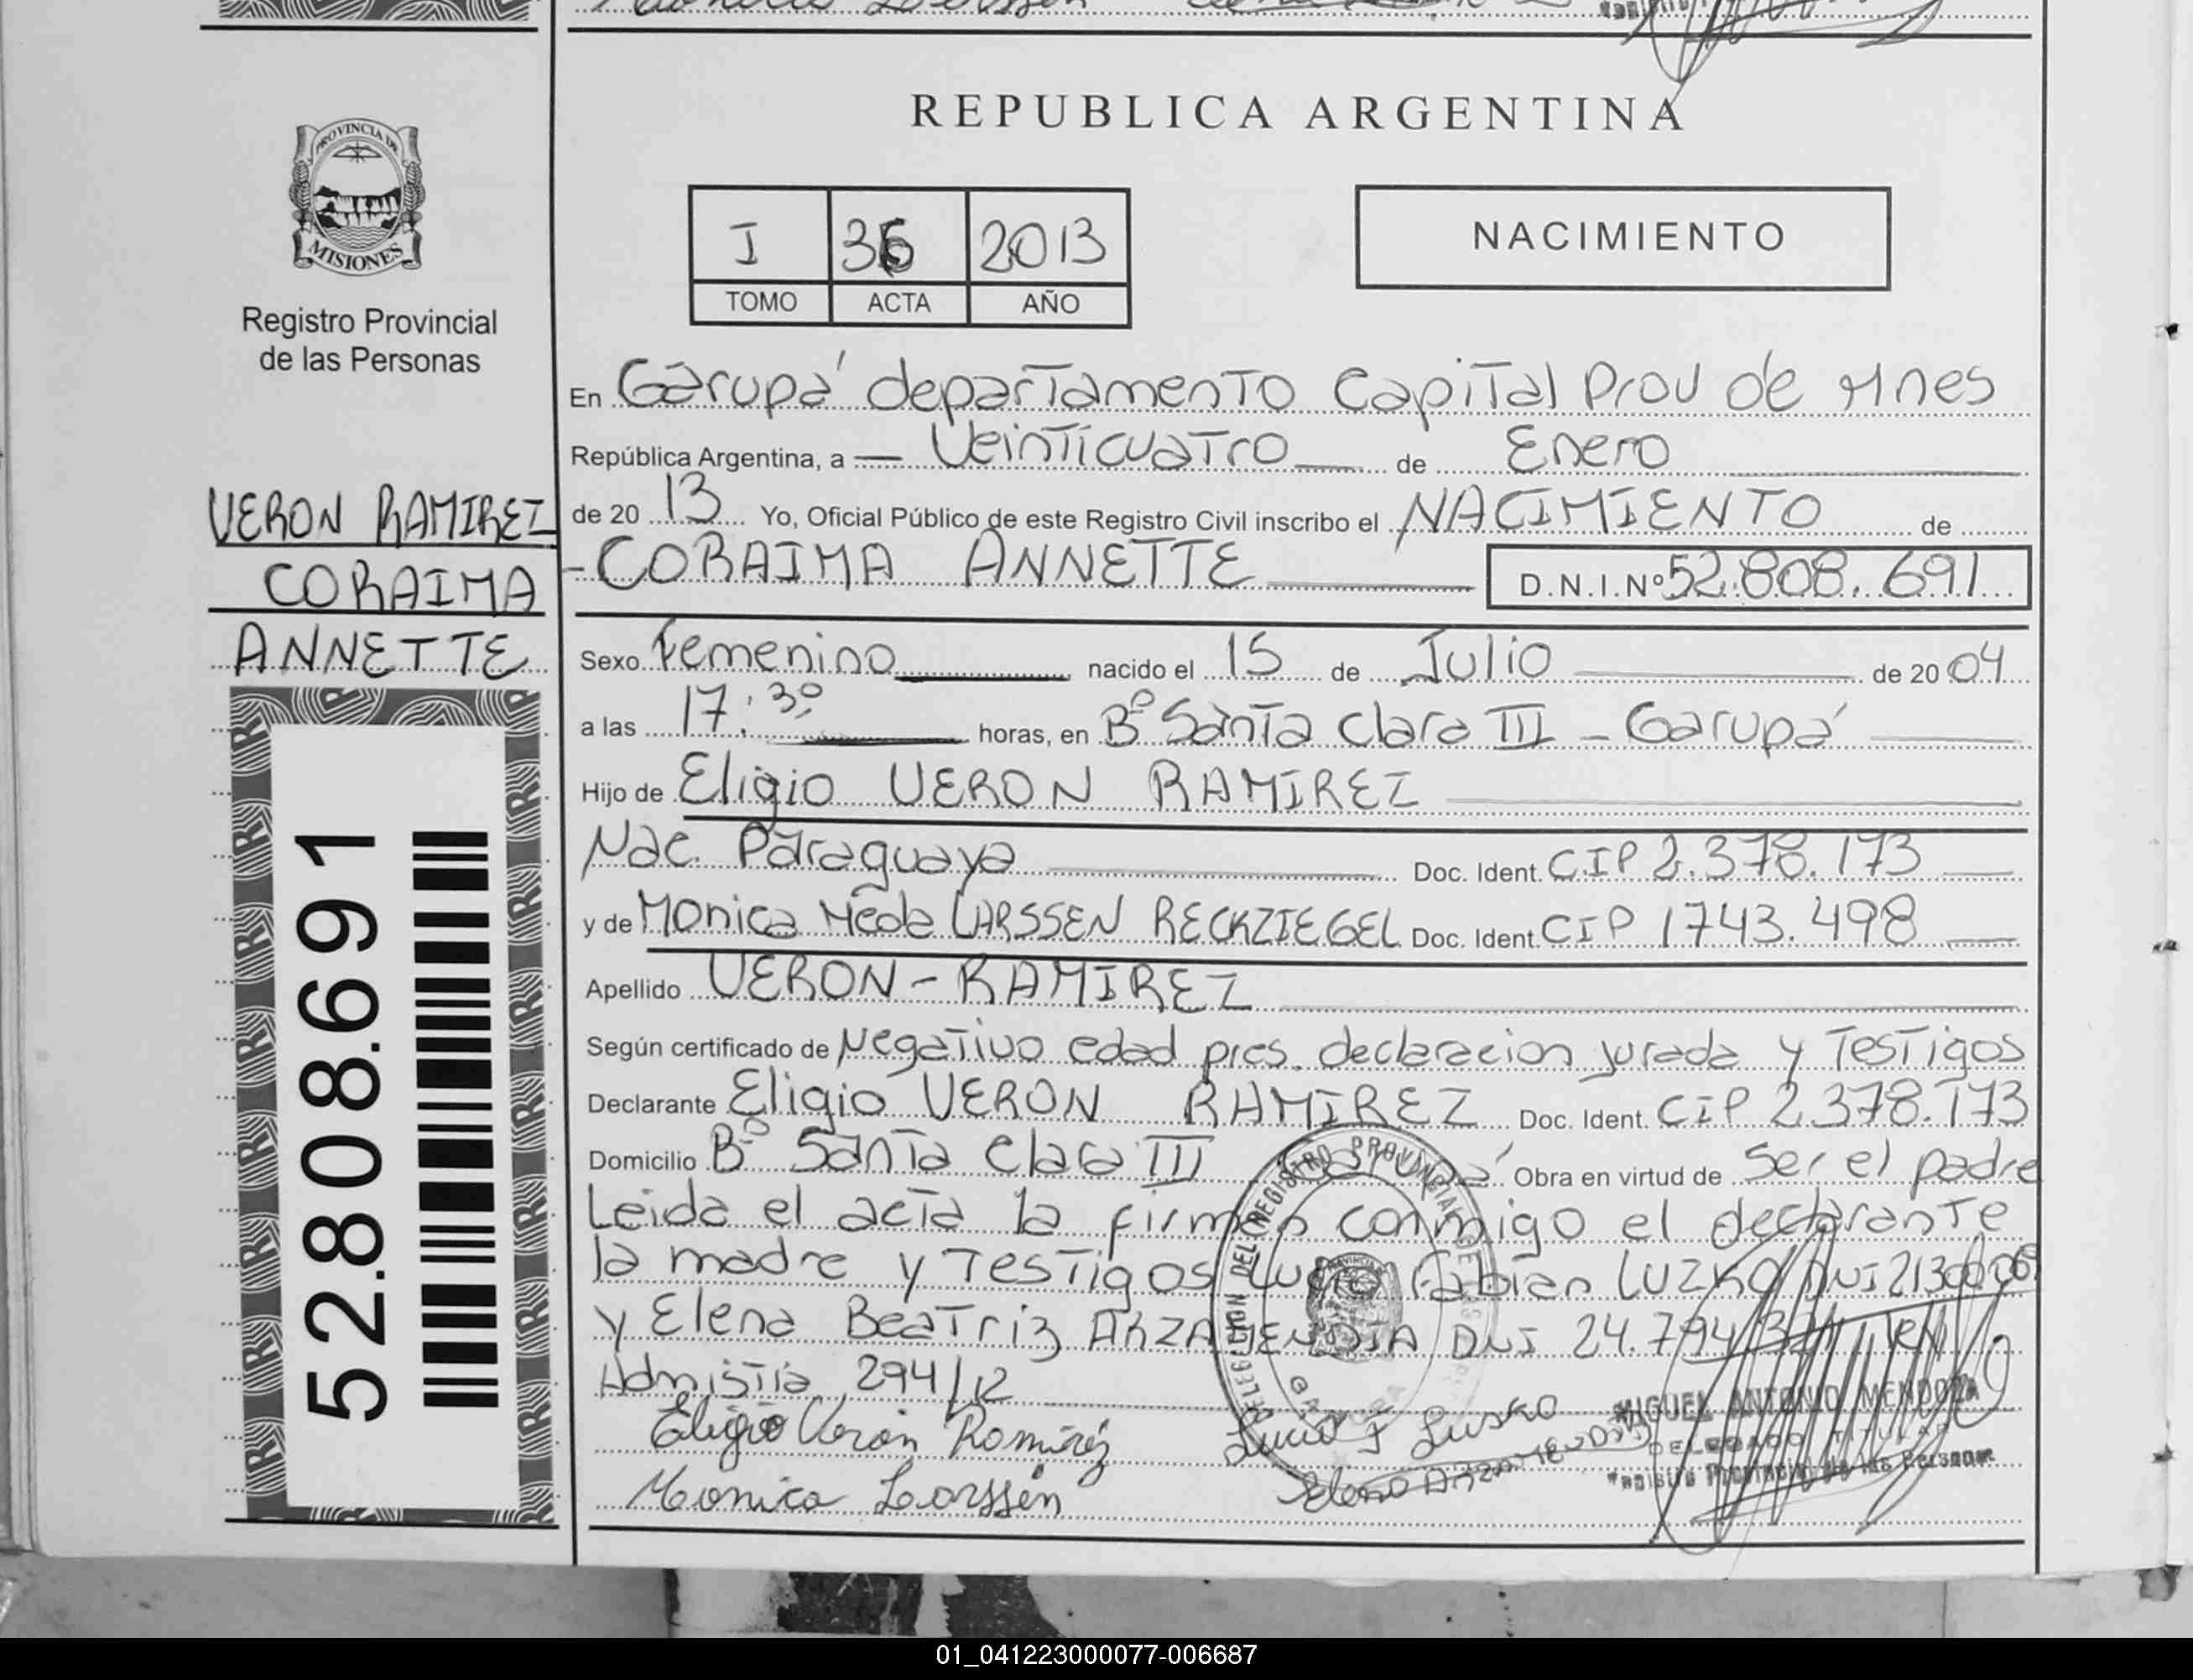 REPUBLICA ARGENTINA
PROVINCIA DE
MISIONES
Registro Provincial
de las Personas
I 36 2013
TOMO ACTA AÑO
NACIMIENTO
VERON RAMIREZ
CORAIMA
ANNETTE
52.808.691
En Garupá departamento Capital Prov de Mnes
República Argentina, a — Veinticuatro — de Enero
de 20 13 Yo, Oficial Público de este Registro Civil inscribo el NACIMIENTO de
- CORAIMA ANNETTE D.N.I.Nº 52.808.691
Sexo Femenino nacido el 15 de Julio de 20 04
a las 17:30 horas, en Bº Santa Clara III - Garupá
Hijo de Eligio VERON RAMIREZ
Nac. Paraguaya Doc. Ident. CIP 2.378.173
y de Monica LARSSEN RECKZIEGEL Doc. Ident. CIP 1743.498
Apellido VERON - RAMIREZ
Según certificado de Negativo edad pres. declaracion jurada y Testigos
Declarante Eligio VERON RAMIREZ Doc. Ident. CIP 2.378.173
Domicilio Bº Santa Clara III Garupá Obra en virtud de Ser el padre
Leida el acta la firman conmigo el declarante
la madre y Testigos Fabian LUZKO DNI
y Elena Beatriz ARZAMENDIA DNI 24.794
294/12
Eligio Veron Ramirez
Monica Larssen
Elena ARZAMENDIA
MIGUEL ANTONIO MENDOZA
DELEGADO TITULAR
Registro Provincial de las Personas
DELEGACION DEL REGISTRO PROVINCIAL DE
01_041223000077-006687